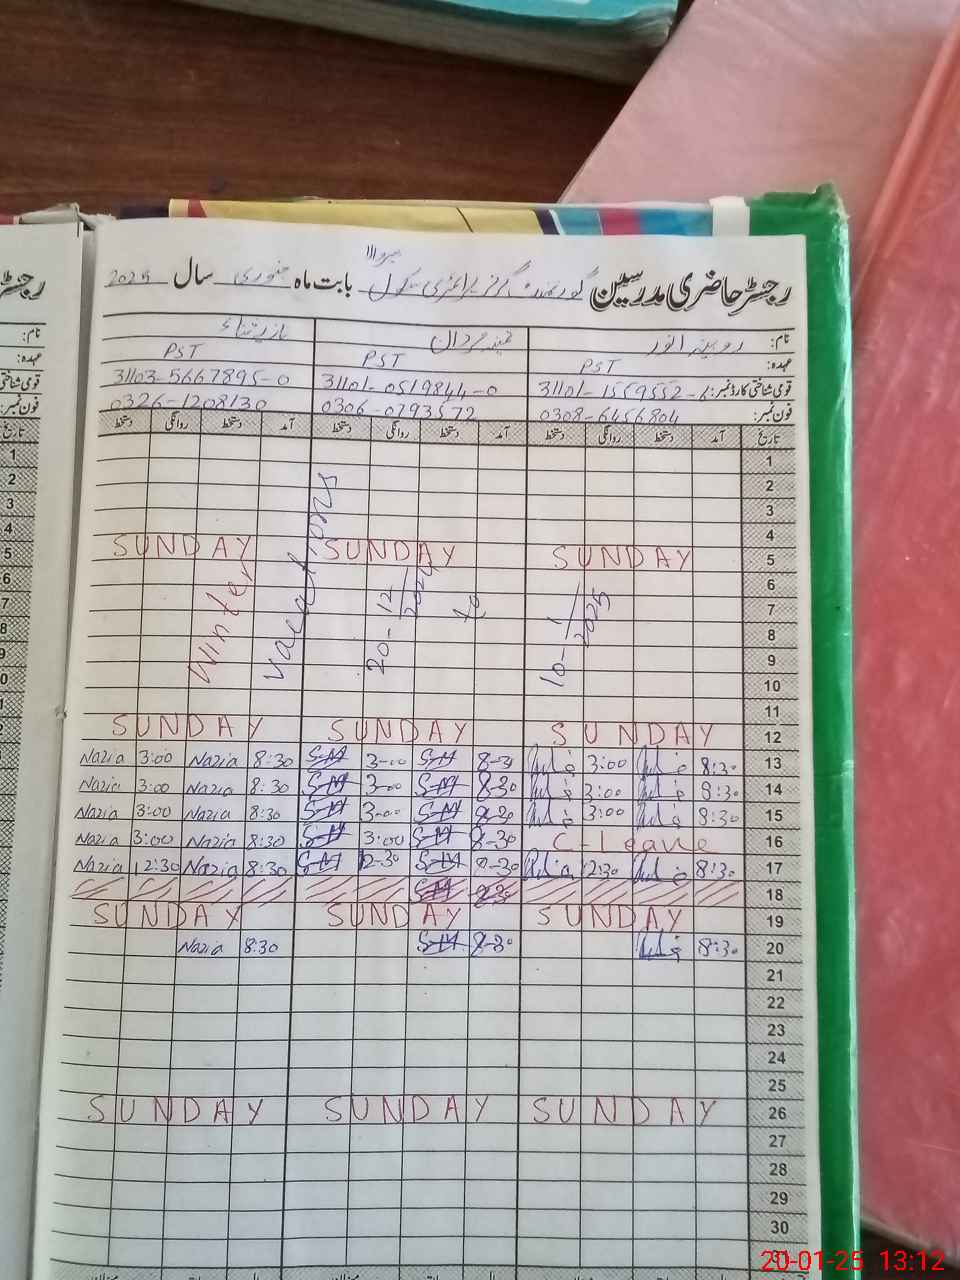 رجسٹر حاضری مدرسین گورنمنٹ گرلز پرائمری سکول بابت ماہ جنوری سال 2025
نام: روبینہ انور
عہدہ: PST PST PST
قومی شناختی کارڈ نمبر: 31101-1559552- 31101-0519844-0 31103-5667895-0
فون نمبر: 0308-6456804 0306-0793572 0326-1208130
تاریخ آمد دستخط روانگی دستخط آمد دستخط روانگی دستخط آمد دستخط روانگی دستخط
1
2
3
4
SUNDAY SUNDAY SUNDAY 5
6
7
8
9
10
Winter vacations 20-12/2024 to 10-1/2025
11
SUNDAY SUNDAY SUNDAY 12
Nazia 3:00 Nazia 8:30 SM 3-00 SM 8-30 3:00 8:30 13
Nazia 3:00 Nazia 8:30 SM 3-00 SM 8-30 3:00 8:30 14
Nazia 3:00 Nazia 8:30 SM 3-00 SM 8-30 3:00 8:30 15
Nazia 3:00 Nazia 8:30 SM 3:00 SM 8-30 C-Leave 16
Nazia 12:30 Nazia 8:30 SM 12-30 SM 8-30 12:30 8:30 17
SM 8-30 18
SUNDAY SUNDAY SUNDAY 19
Nazia 8:30 SM 8-30 8:30 20
21
22
23
24
25
SUNDAY SUNDAY SUNDAY 26
27
28
29
30
31
20-01-25 13:12